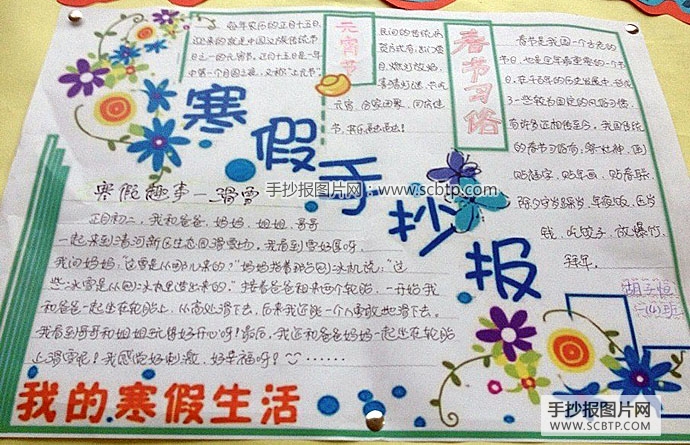 每年农历的正月十五日,
迎来的就是中国的传统节
日之一的元宵节。正月十五日是一年
中第一个月圆之夜,又称"上元节"。
元宵节
民间的传统
灯放焰
元宵、合家团聚、同庆佳
节,其乐融融!
春节习俗
春节是我国一个古老的
节日,也是全年最重要的一个节
日,在千百年的历史发展中,形成
了一些较为固定的风俗习惯,
有许多还相传至今,我国传统
的春节习俗有:祭灶神、
贴门神、贴年画、贴春联、
除夕守岁、年夜饭、压岁
钱、吃饺子、放爆竹、
拜年。
寒假手抄报
手抄报图片网:www.scbtp.com
寒假趣事—滑雪
正月初二,我和爸爸、妈妈、姐姐、哥哥
一起来到清河新区生态园滑雪场,我看到雪好厚呀,
我问妈妈:"这雪是从哪儿来的?"妈妈指着那台圆冰机说:"这
些冰雪是从圆冰机里造出来的。"接着爸爸租来两个轮胎,一开始我
和爸爸一起坐在轮胎上,从高处滑下去,后来我还能一个人勇敢地滑下去。
我看到哥哥和姐姐玩得好开心呀!最后,我还和爸爸妈妈一起坐在轮胎
上滑雪呢!我感觉好刺激,好幸福呀!……
胡子恒
一(4)班
我的寒假生活
手抄报图片网
WWW.SCBTP.COM